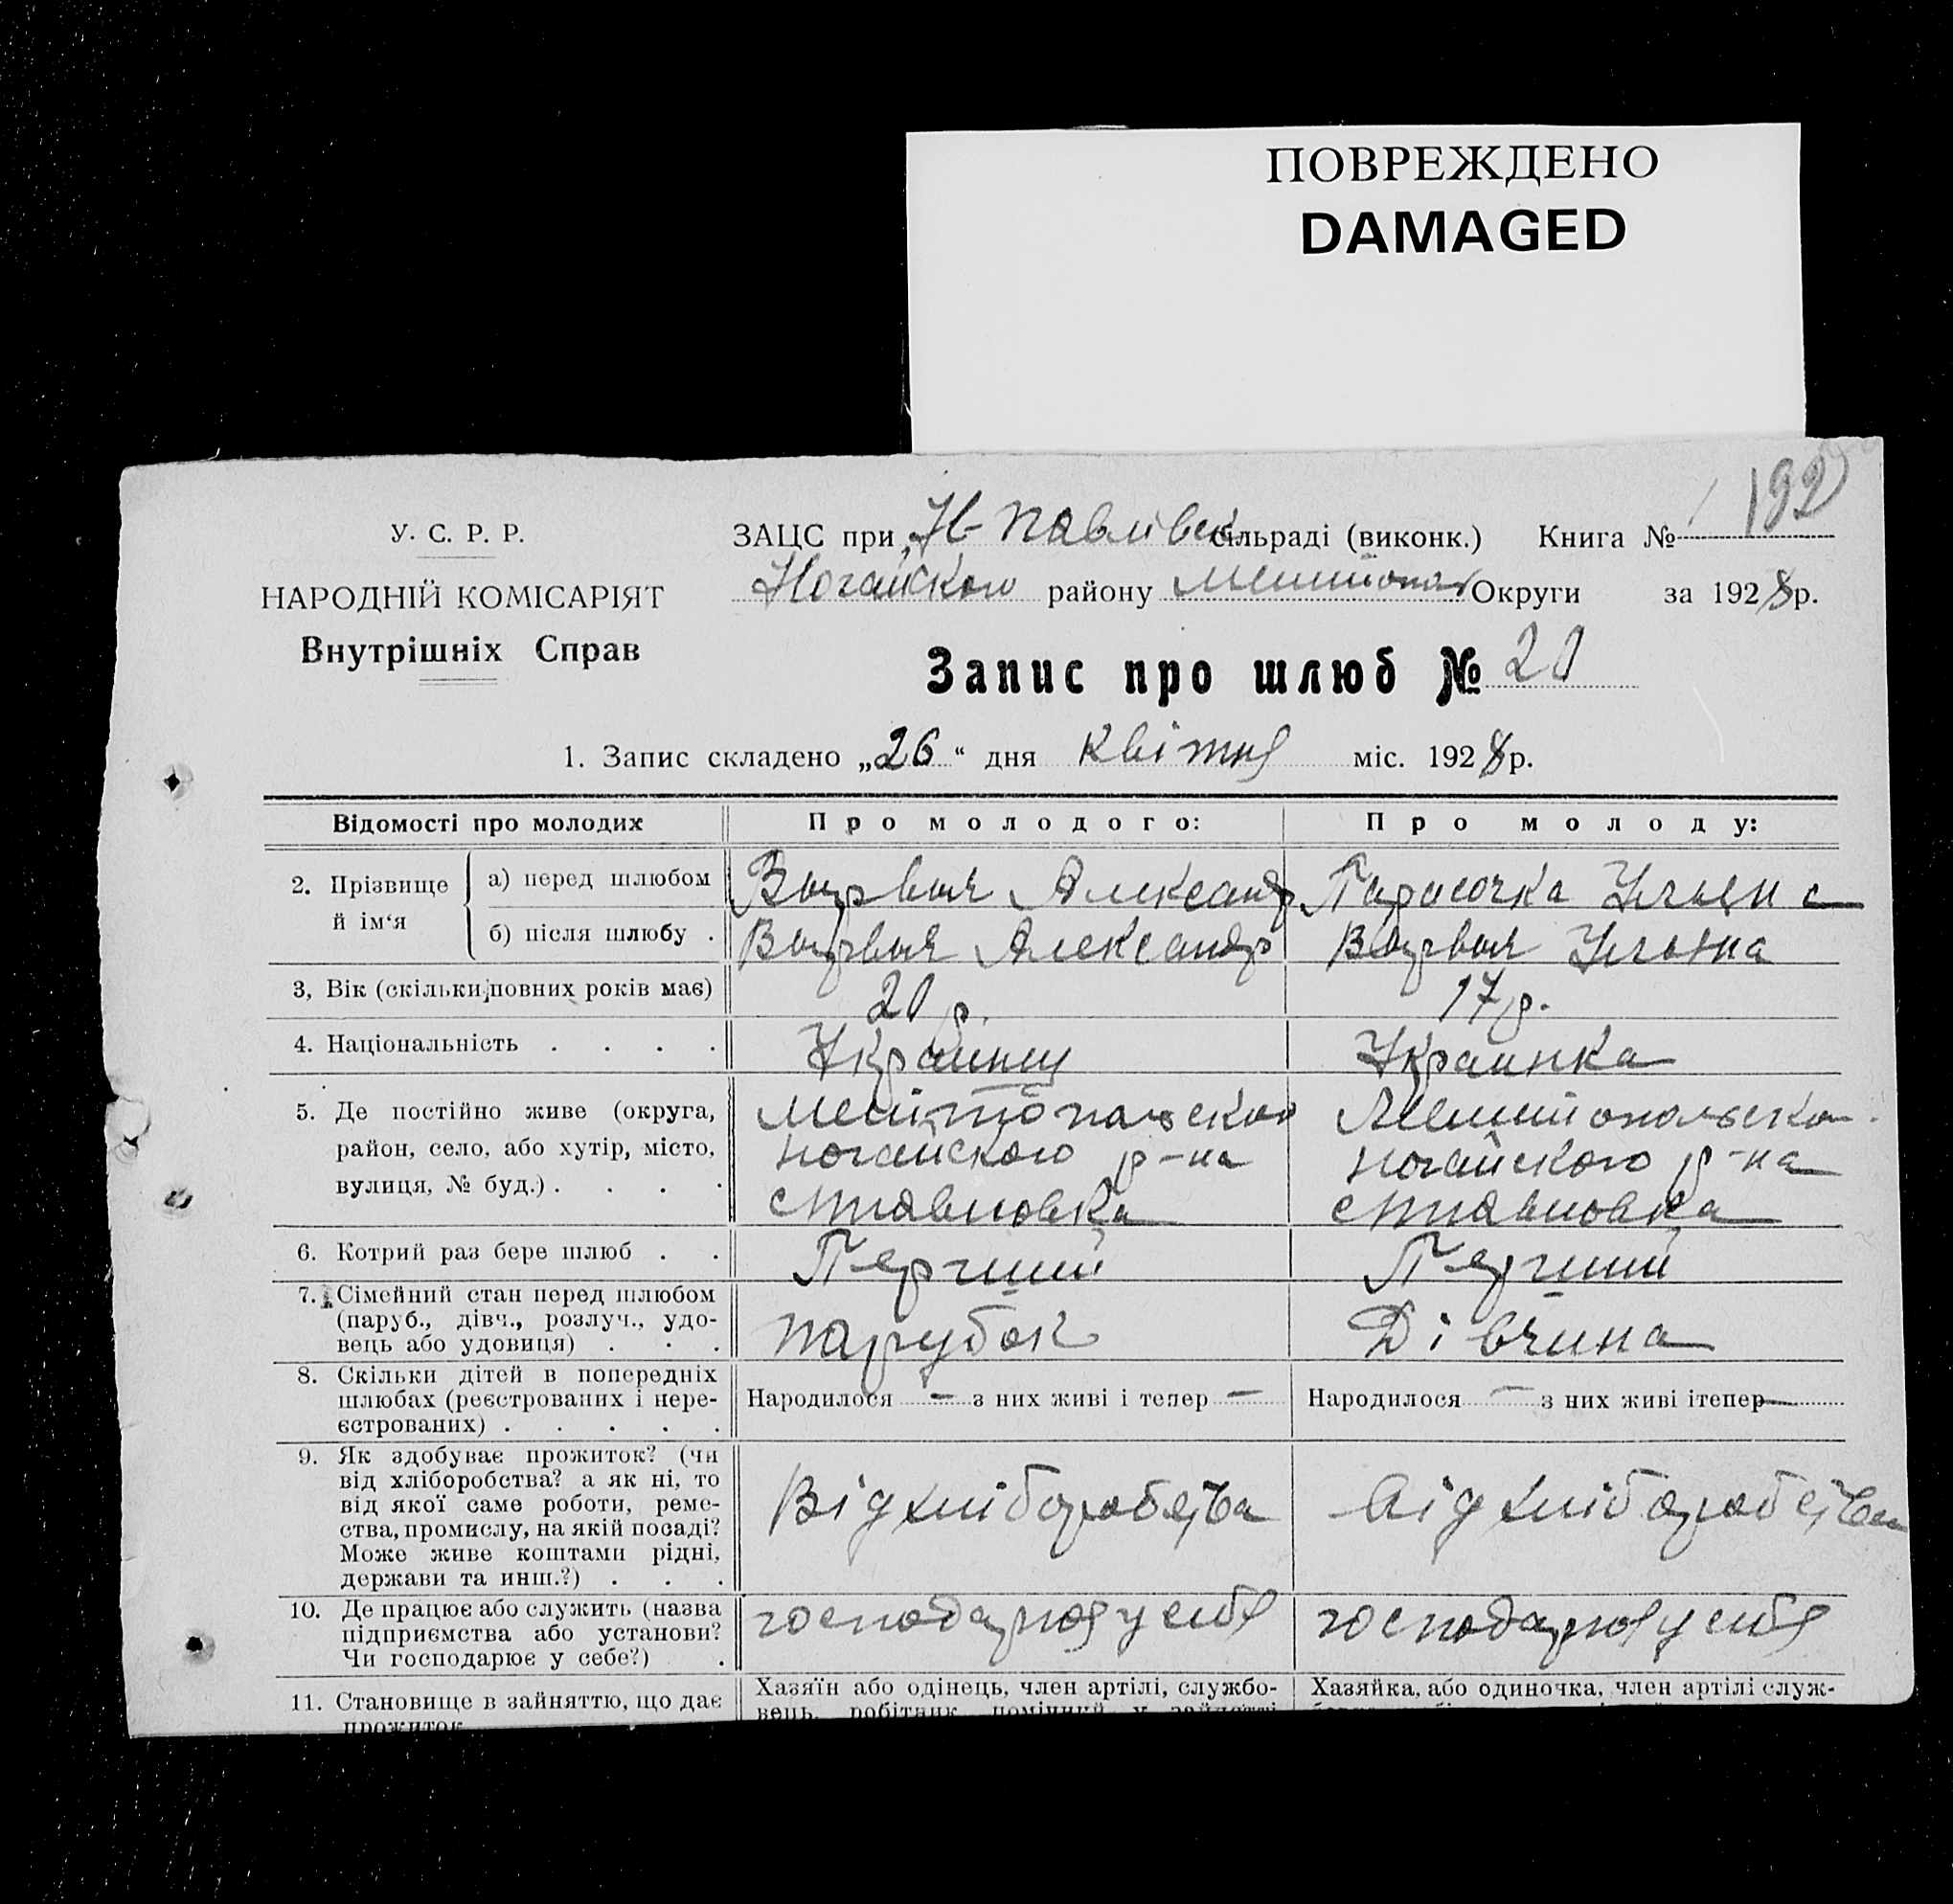 ПОВРЕЖДЕНО
DAMAGED
192
У. С. Р. Р.
НАРОДНІЙ КОМІСАРІЯТ
Внутрішніх Справ
ЗАЦС при Н-Павлівск сільраді (виконк.) Книга №
Ногайского району Мелитопол Округи за 1928 р.
Запис про шлюб № 20
1. Запис складено „26“ дня Квітня міс. 1928 р.
Відомості про молодих
Про молодого:
Про молоду:
2. Прізвище й ім‘я
а) перед шлюбом
Александр
Парасочка
б) після шлюбу .
Александр
3, Вік (скільки повних років має)
20 р.
17 р.
4. Національність . . . .
Украинец
Украинка
5. Де постійно живе (округа,
район, село, або хутір, місто,
вулиця, № буд.) . . . .
Мелітопольскои
ногайского р-на
Мелитопольскои
ногайского р-на
6. Котрий раз бере шлюб . .
Перший
Перший
7. Сімейний стан перед шлюбом
(паруб., дівч., розлуч., удо-
вець або удовиця) . . .
парубок
Дівчина
8. Скільки дітей в попередніх
шлюбах (реєстрованих і нере-
єстрованих) . . . . .
Народилося — з них живі і тепер —
Народилося — з них живі ітепер —
9. Як здобуває прожиток? (чи
від хліборобства? а як ні, то
від якої саме роботи, реме-
ства, промислу, на якій посаді?
Може живе коштами рідні,
держави та инш.?) . . .
Від хліборобства
від хліборобства
10. Де працює або служить (назва
підприємства або установи?
Чи господарює у себе?) .
господарює у себе
господарює у себе
11. Становище в зайняттю, що дає
прожиток
Хазяїн або одінець, член артілі, службо-
вець, робітник, помічний у зайнятті
Хазяйка, або одиночка, член артілі служ-